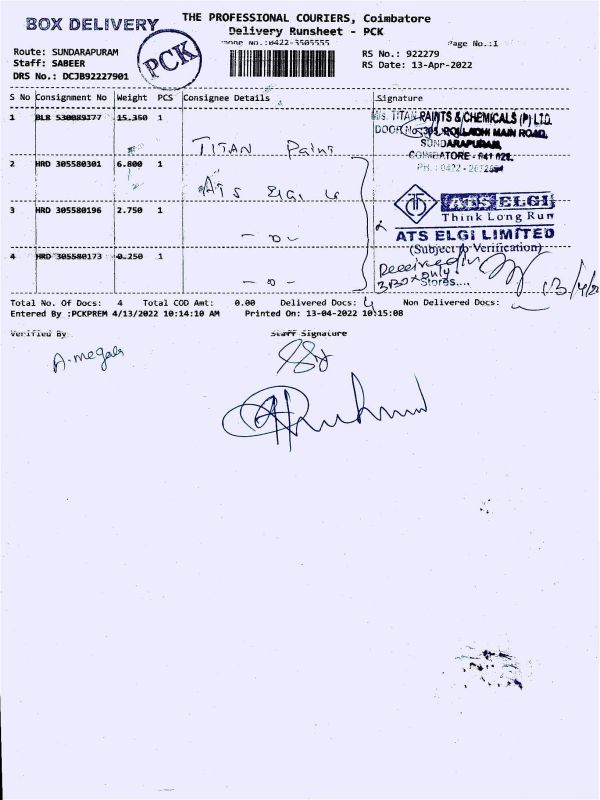 BOX DELIVERY
THE PROFESSIONAL COURIERS, Coimbatore
Delivery Runsheet - PCK
Phone No.:0422-3505555
Page No.:1
PCK
Route: SUNDARAPURAM
Staff: SABEER
DRS No.: DCJB92227901
RS No.: 922279
RS Date: 13-Apr-2022
S No Consignment No Weight PCS Consignee Details Signature
1 BLR 530089177 15.350 1
TITAN Paint
M/s. TITAN PAINTS & CHEMICALS (P) LTD.
MAIN ROAD,
SUNDARAPURAM,
COIMBATORE - 641 024.
PH : 0422 -
2 HRD 305580301 6.800 1
ATS ELGi
ATS ELGI
Think Long Run
3 HRD 305580196 2.750 1
- D -
ATS ELGI LIMITED
(Subject to Verification)
4 HRD 305580173 0.250 1
- D -
Received in
3 Box only
Stores....
13/4/22
Total No. Of Docs: 4 Total COD Amt: 0.00 Delivered Docs: 4 Non Delivered Docs:
Entered By :PCKPREM 4/13/2022 10:14:10 AM Printed On: 13-04-2022 10:15:08
Verified By
Staff Signature
A. megala